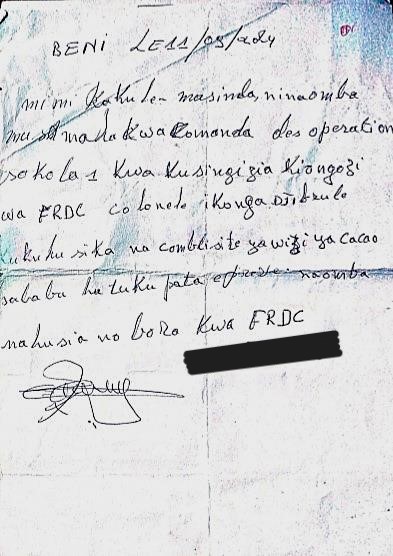 BENI LE 11/03/2024
mimi Kakule masinda, ninaomba
msamaha Kwa Comanda des operation
sokola 1 Kwa Kusingizia Kiongozi
wa FRDC colonele ikonga Djibrile
kuhusika na complisite ya wizi ya cacao
sababu hatuku pata epreve. naomba
mahusiano bora Kwa FRDC